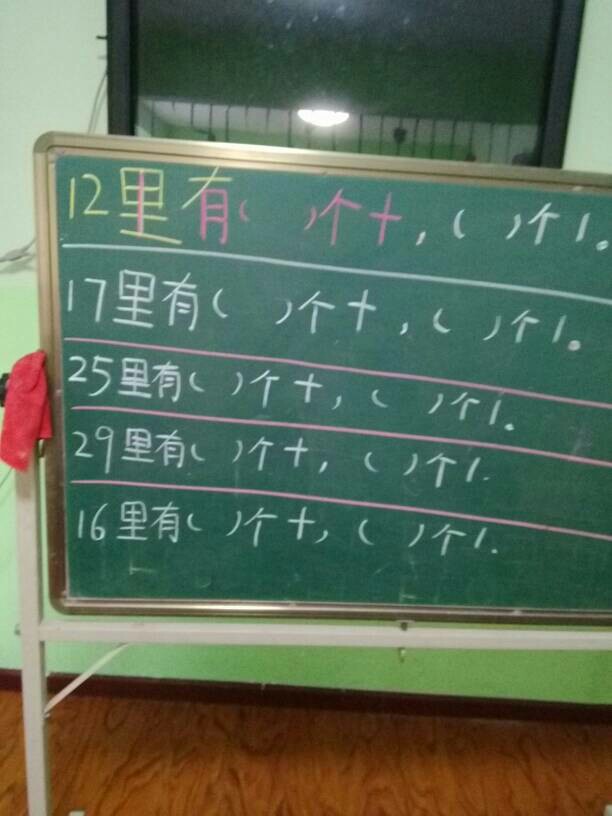 12里有( )个十,( )个1。
17里有( )个十,( )个1。
25里有( )个十,( )个1。
29里有( )个十,( )个1.
16里有( )个十,( )个1.